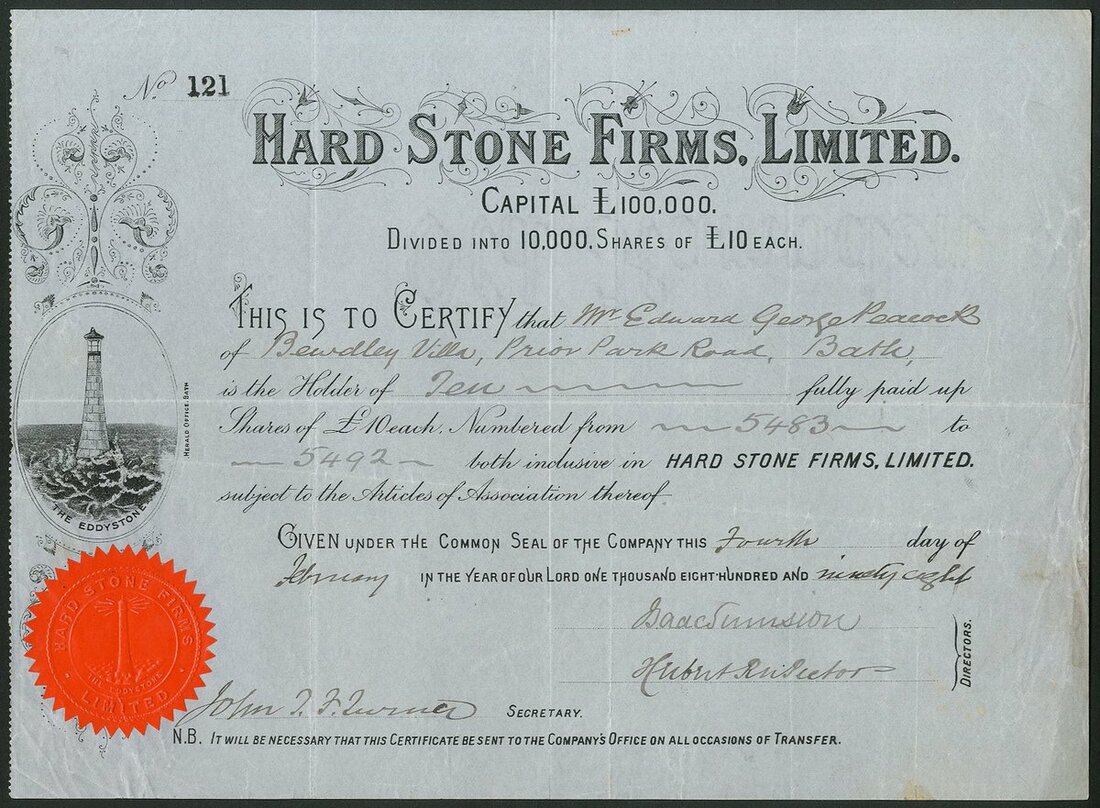 No 121
HARD STONE FIRMS, LIMITED.
CAPITAL £100,000.
DIVIDED INTO 10,000. SHARES OF £10 EACH.
THIS IS TO CERTIFY that Mr Edward George Peacock
of Bewdley Villa, Prior Park Road, Bath,
is the Holder of Ten fully paid up
Shares of £10 each. Numbered from 5483 to
5492 both inclusive in HARD STONE FIRMS, LIMITED.
subject to the Articles of Association thereof
GIVEN UNDER THE COMMON SEAL OF THE COMPANY THIS Fourth day of
February IN THE YEAR OF OUR LORD ONE THOUSAND EIGHT-HUNDRED AND ninety eight
Isaac Sumsion
Herbert
DIRECTORS.
John T. F. Turner SECRETARY.
N.B. IT WILL BE NECESSARY THAT THIS CERTIFICATE BE SENT TO THE COMPANY'S OFFICE ON ALL OCCASIONS OF TRANSFER.
HERALD OFFICE. BATH
THE EDDYSTONE
HARD STONE FIRMS
LIMITED
THE EDDYSTONE